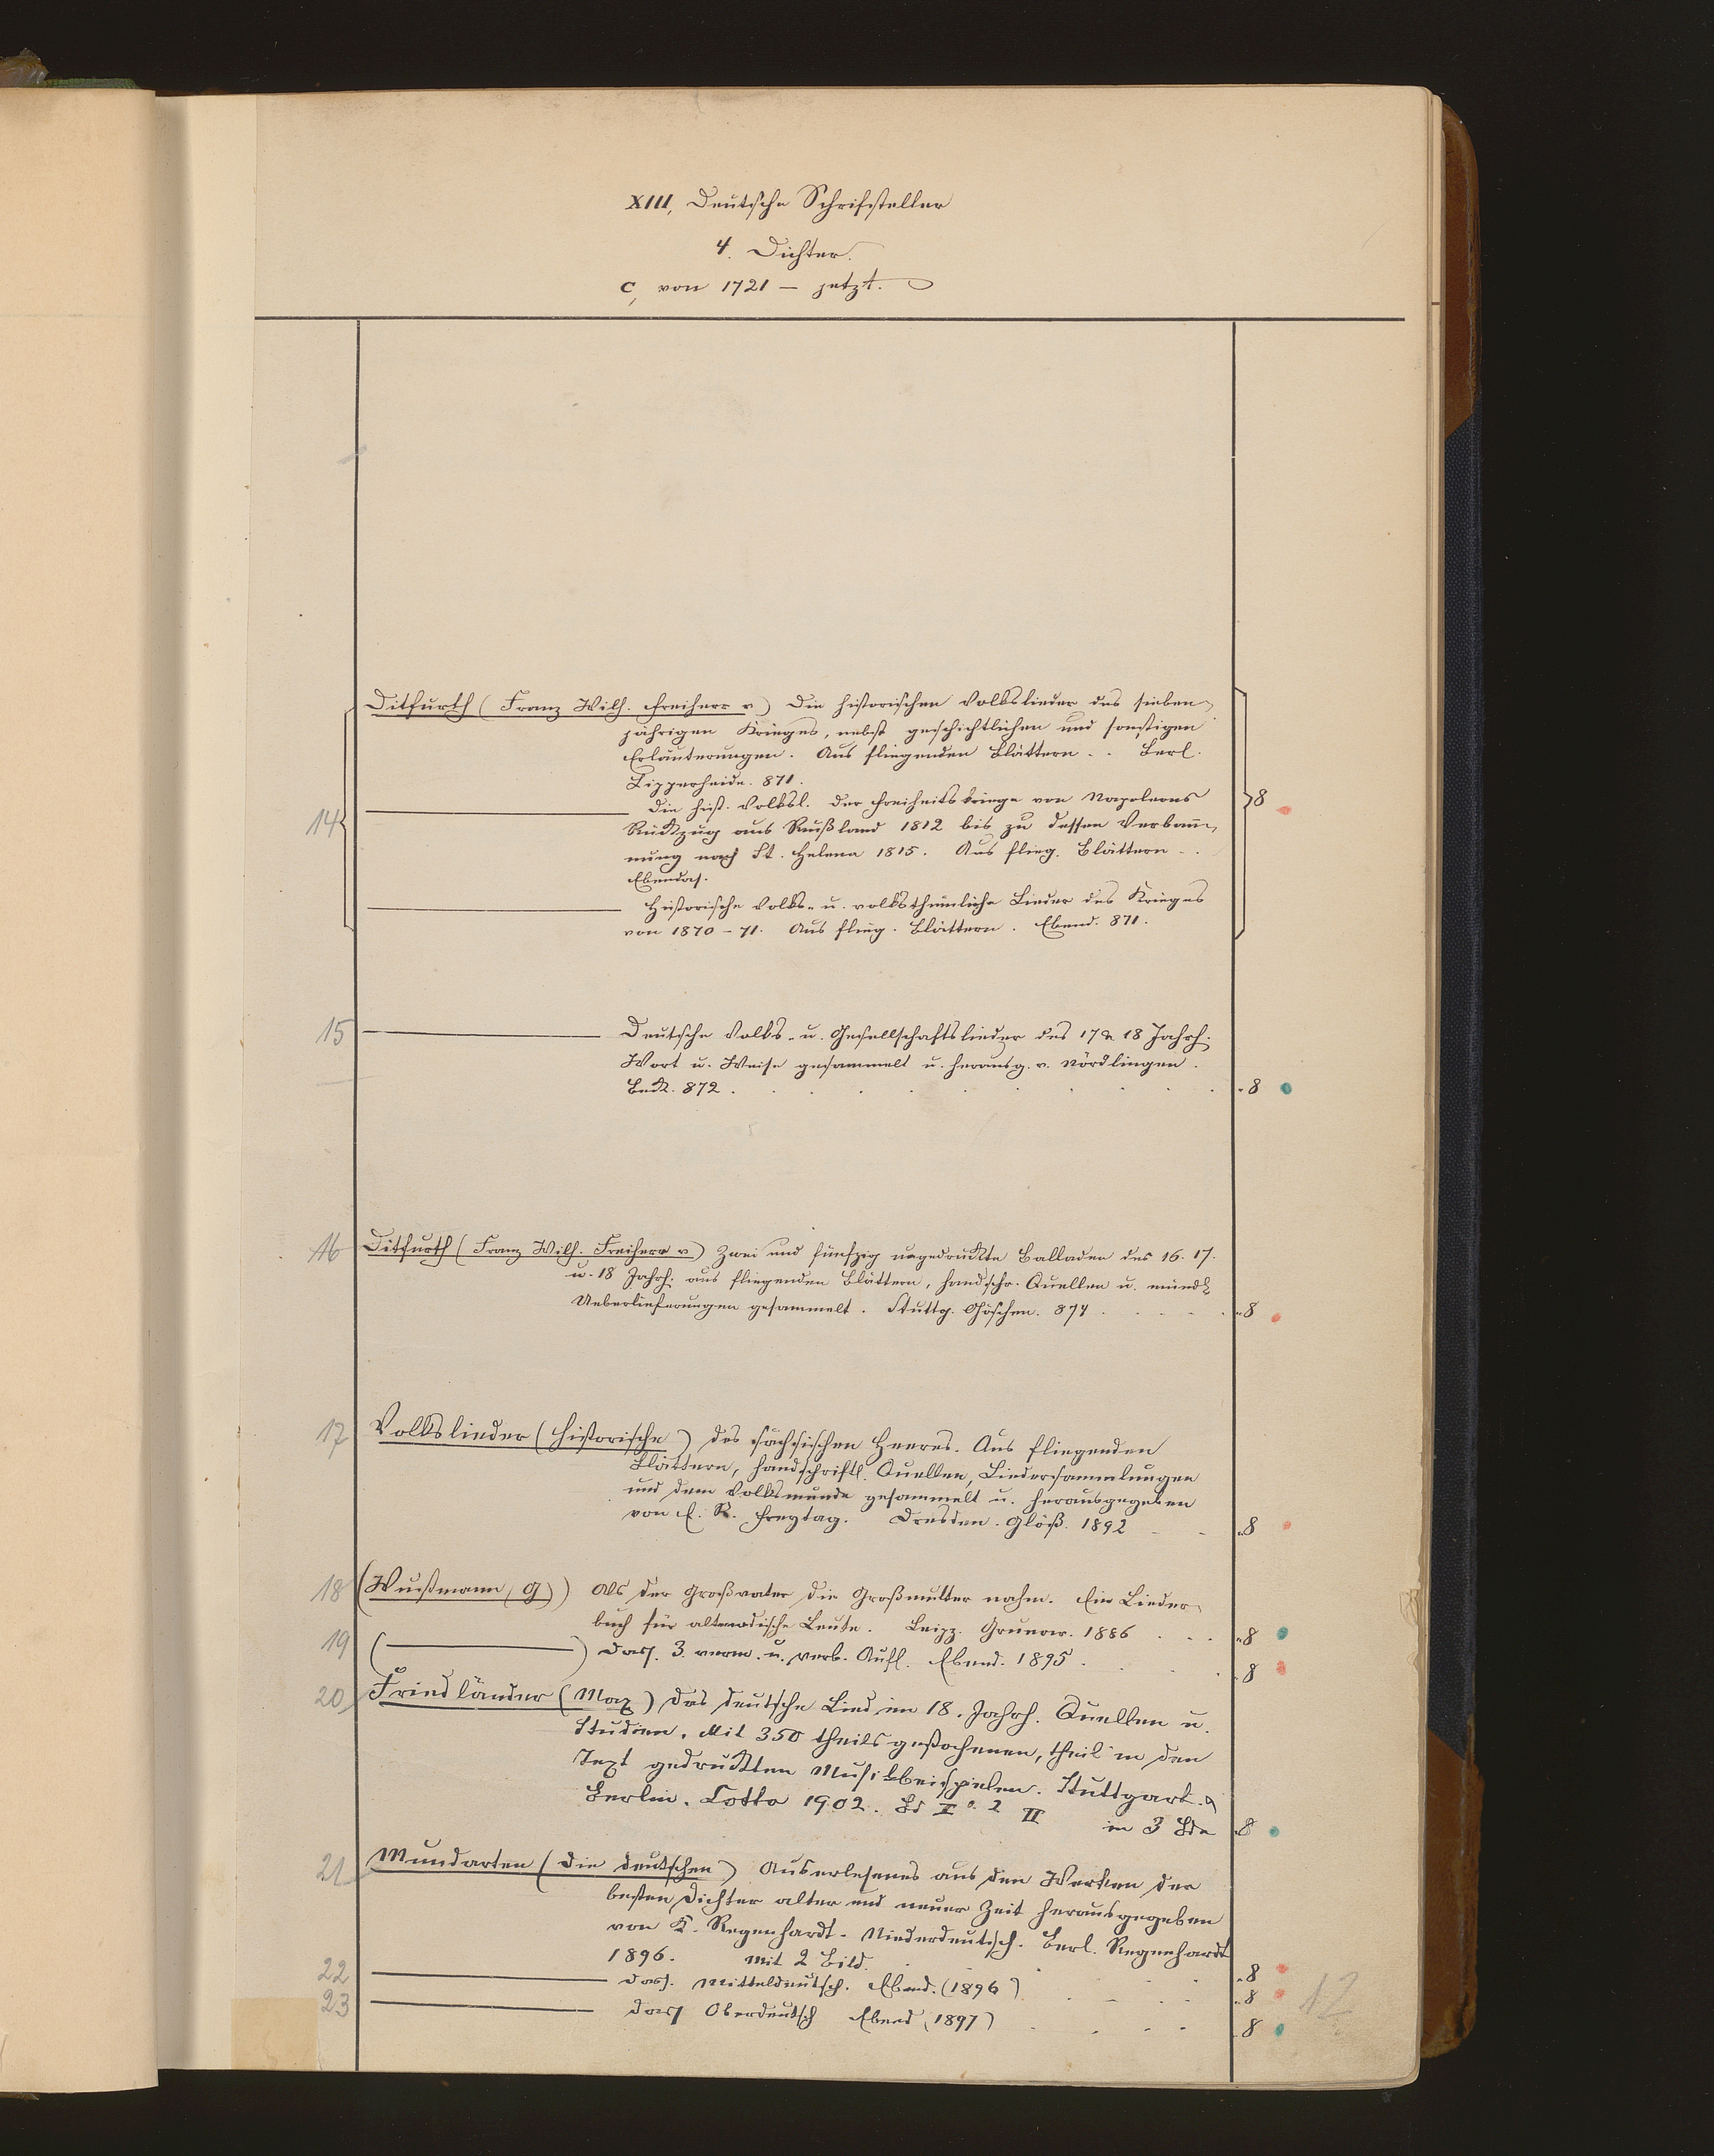 XIII, Deutsche Schriftsteller
4. Dichter.
c, von 1721 — jetzt.
Ditfurth (Franz Wilh. Freiherr v) Die historischen Volkslieder des sieben-
jährigen Krieges, nebst geschichtlichen und sonstigen
Erläuterungen. Aus fliegenden Blättern .. Berl.
Lipperheide. 871.
14 ——— Die hist. Volksl. der Freiheitskriege von Napoleons 8
Rückzug aus Rußland 1812 bis zu dessen Verban̄-
nung nach St. Helena 1815. Aus flieg. Blättern ..
Ebendas.
——— Historische Volks- u. volksthümliche Lieder des Krieges
von 1870-71. Aus flieg. Blättern. Ebend. 871.
15 ——— Deutsche Volks- u. Gesellschaftslieder des 17 & 18 Jahrh.
Wort u. Weise gesammelt u. herausg. v. Nördlingen.
Beck. 872. 8
16 Ditfurth (Franz Wilh. Freiherr v) Zwei und fünfzig ungedruckte Balladen des 16. 17.
u. 18 Jahrh. aus fliegenden Blättern, handschr. Quellen u. mündl.
Ueberlieferungen gesammelt. Stuttg. Göschen. 874 8
17 Volkslieder (historische) des sächsischen Heeres. Aus fliegenden
Blättern, handschriftl. Quellen, Liedersammlungen
und dem Volksmunde gesammelt u. herausgegeben
von E. R. Freytag. Dresden. Glöß. 1892 8
18 (Wustmann, G)) Als der Großvater die Großmutter nahm. Ein Lieder-
buch für altmodische Leute. Leipz. Grunow. 1886 8
19 (———) Dass. 3. verm. u. verb. Aufl. Ebend. 1895. 8
20 Friedländer (Max) Das deutsche Lied im 18. Jahrh. Quellen u.
Studien. Mit 350 theils gestochenen, theils in den
Text gedruckten Musikbeispielen. Stuttgart &
Berlin. Cotta 1902. Bd I 1. 2 II in 3 Bde 8
21 Mundarten (Die deutschen) Auserlesenes aus den Werken der
besten Dichter alter und neuer Zeit herausgegeben
von K. Regenhardt. Niederdeutsch. Berl. Regenhardt
1896. Mit 2 Bild. 8
22 ——— Dass. Mitteldeutsch. Ebend. (1896) 8
23 ——— Dass Oberdeutsch Ebend (1897) 8
12